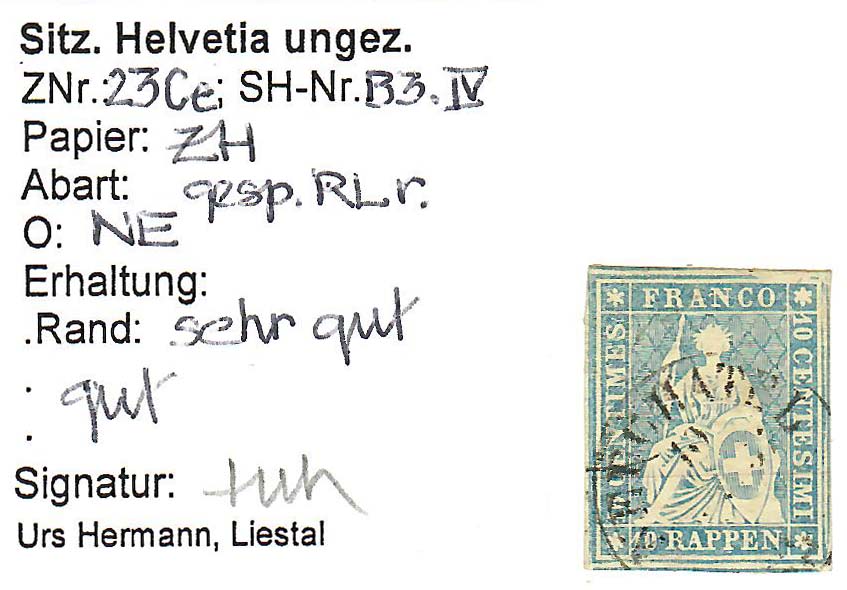 Sitz. Helvetia ungez.
ZNr.:23Ce; SH-Nr.B3.IV
Papier: ZH
Abart: gesp. RL r.
O: NE
Erhaltung:
.Rand: sehr gut
: gut
.
Signatur:
Urs Hermann, Liestal
FRANCO
CENTIMES
10 CENTESIMI
10 RAPPEN